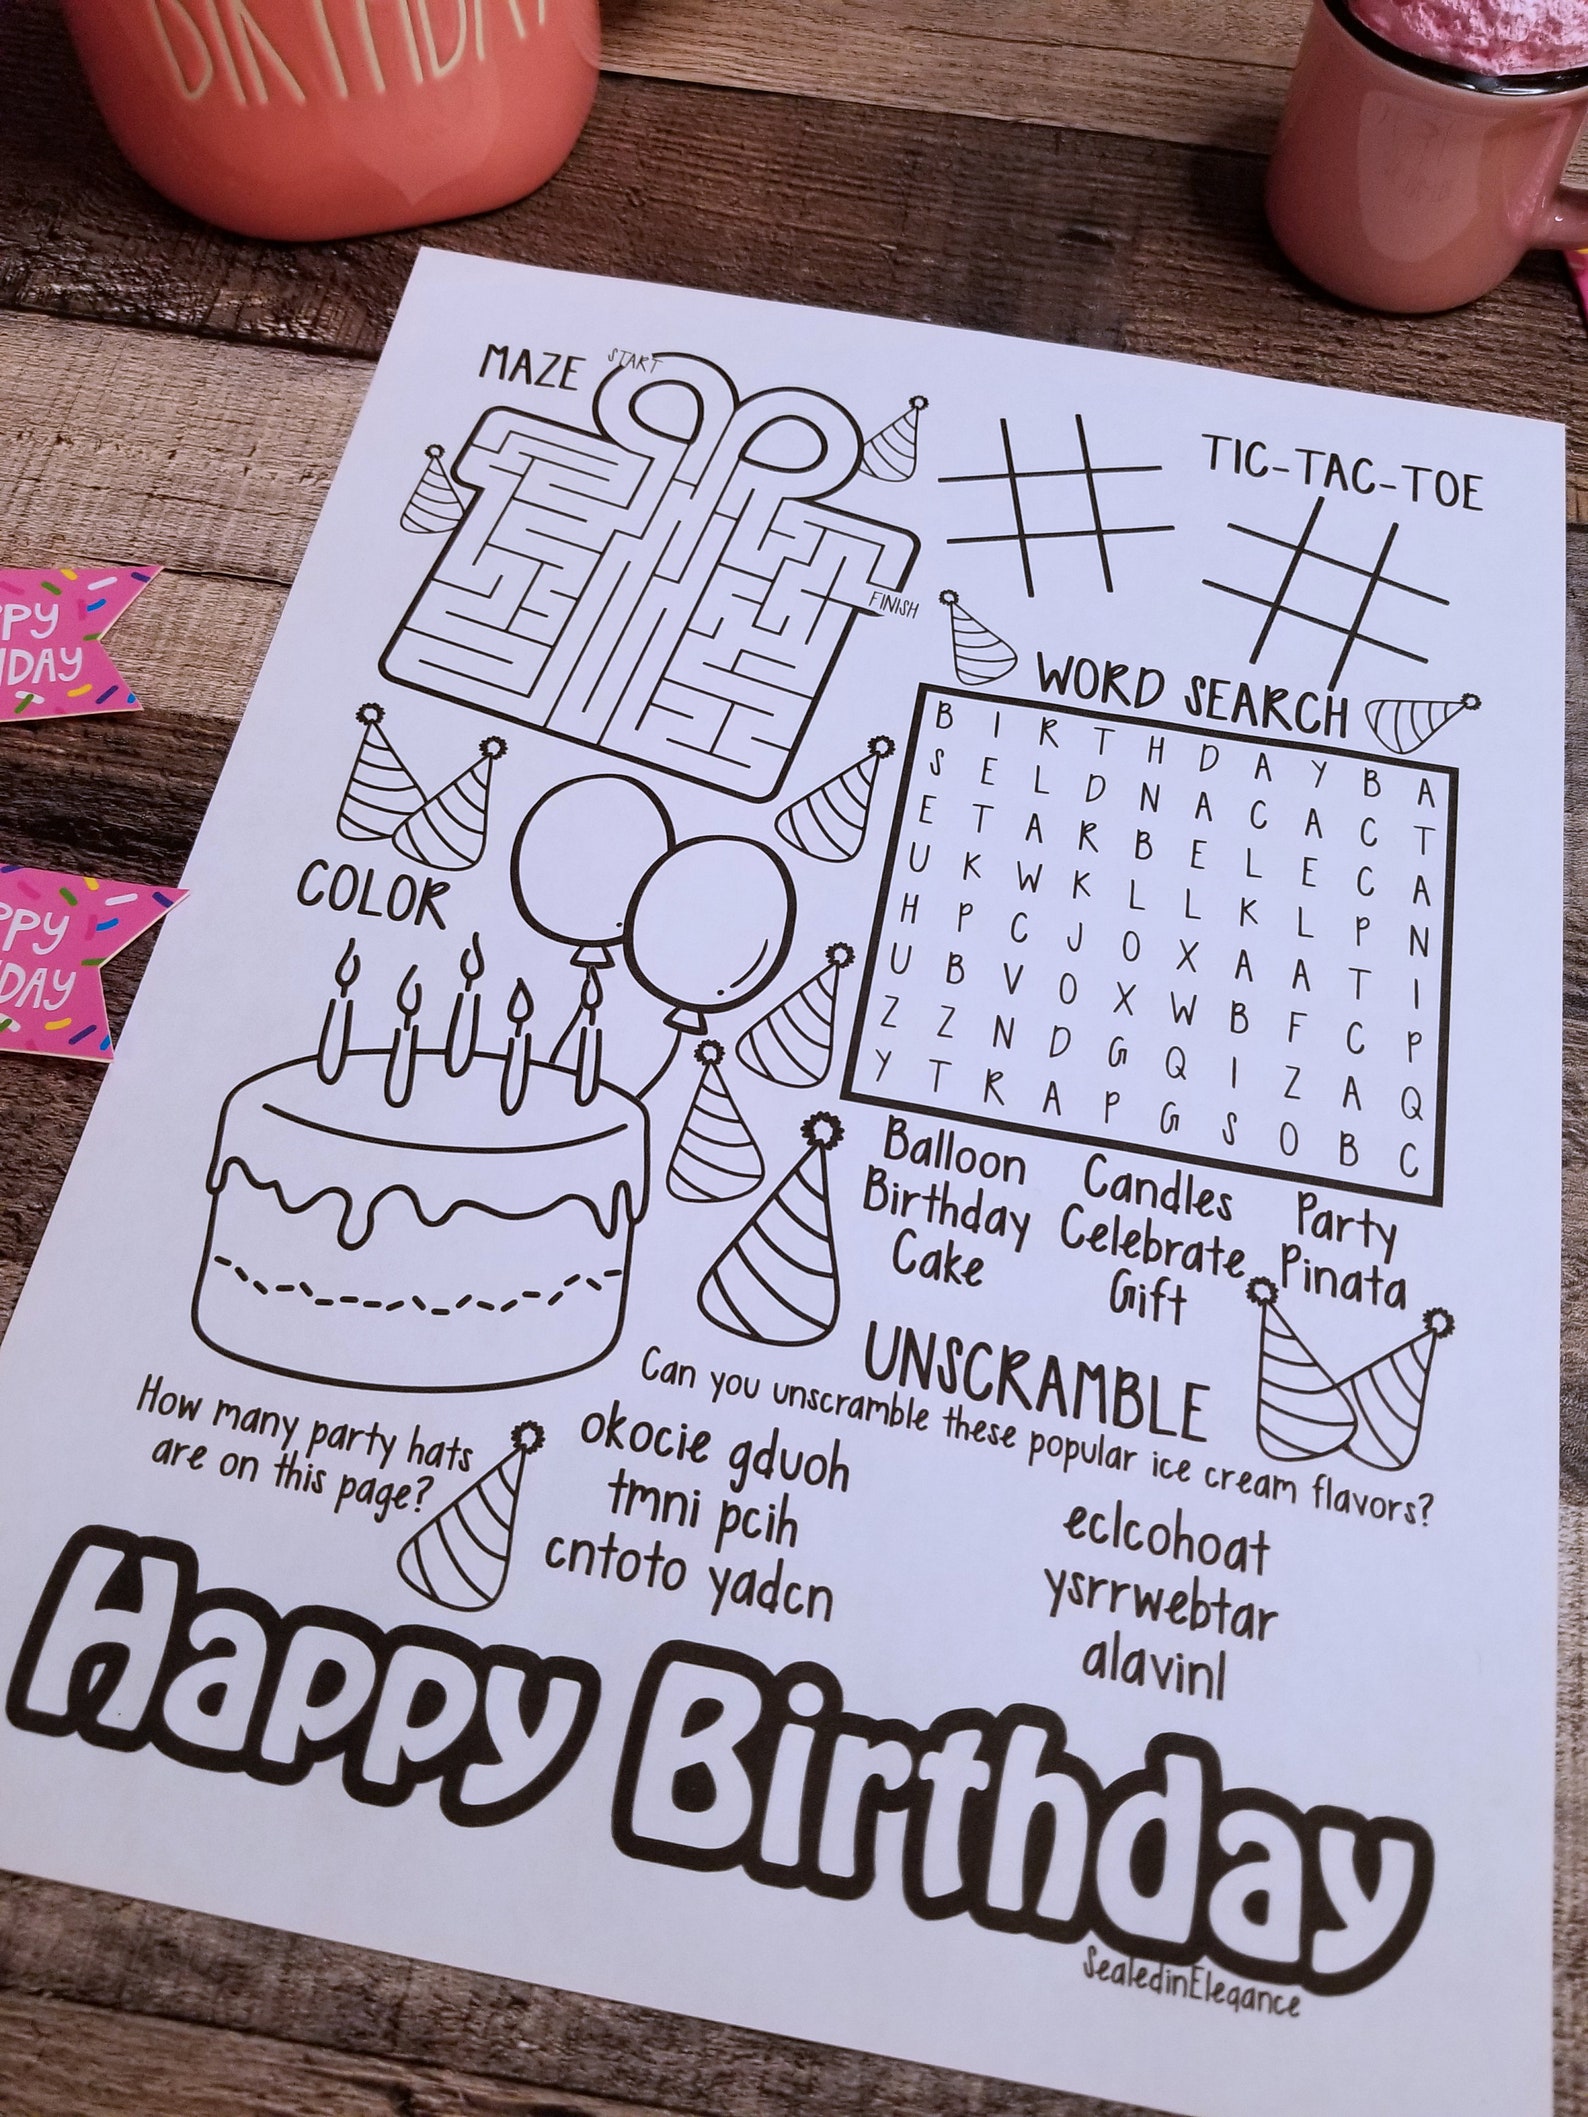 BIRTHDAY
PPY
DAY
PPY
DAY
MAZE
START
FINISH
TIC-TAC-TOE
WORD SEARCH
B I R T H D A Y B A
S E L D N A C A C T
E T A R B E L E C A
U K W K L L K L P N
H P C J O X A A T I
U B V O X W B F C P
Z Z N D G Q I Z A Q
Y T R A P G S O B C
Balloon Candles Party
Birthday Celebrate Pinata
Cake Gift
COLOR
How many party hats
are on this page?
UNSCRAMBLE
Can you unscramble these popular ice cream flavors?
okocie gduoh
tmni pcih
cntoto yadcn
eclcohoat
ysrrwebtar
alavinl
Happy Birthday
SealedinElegance